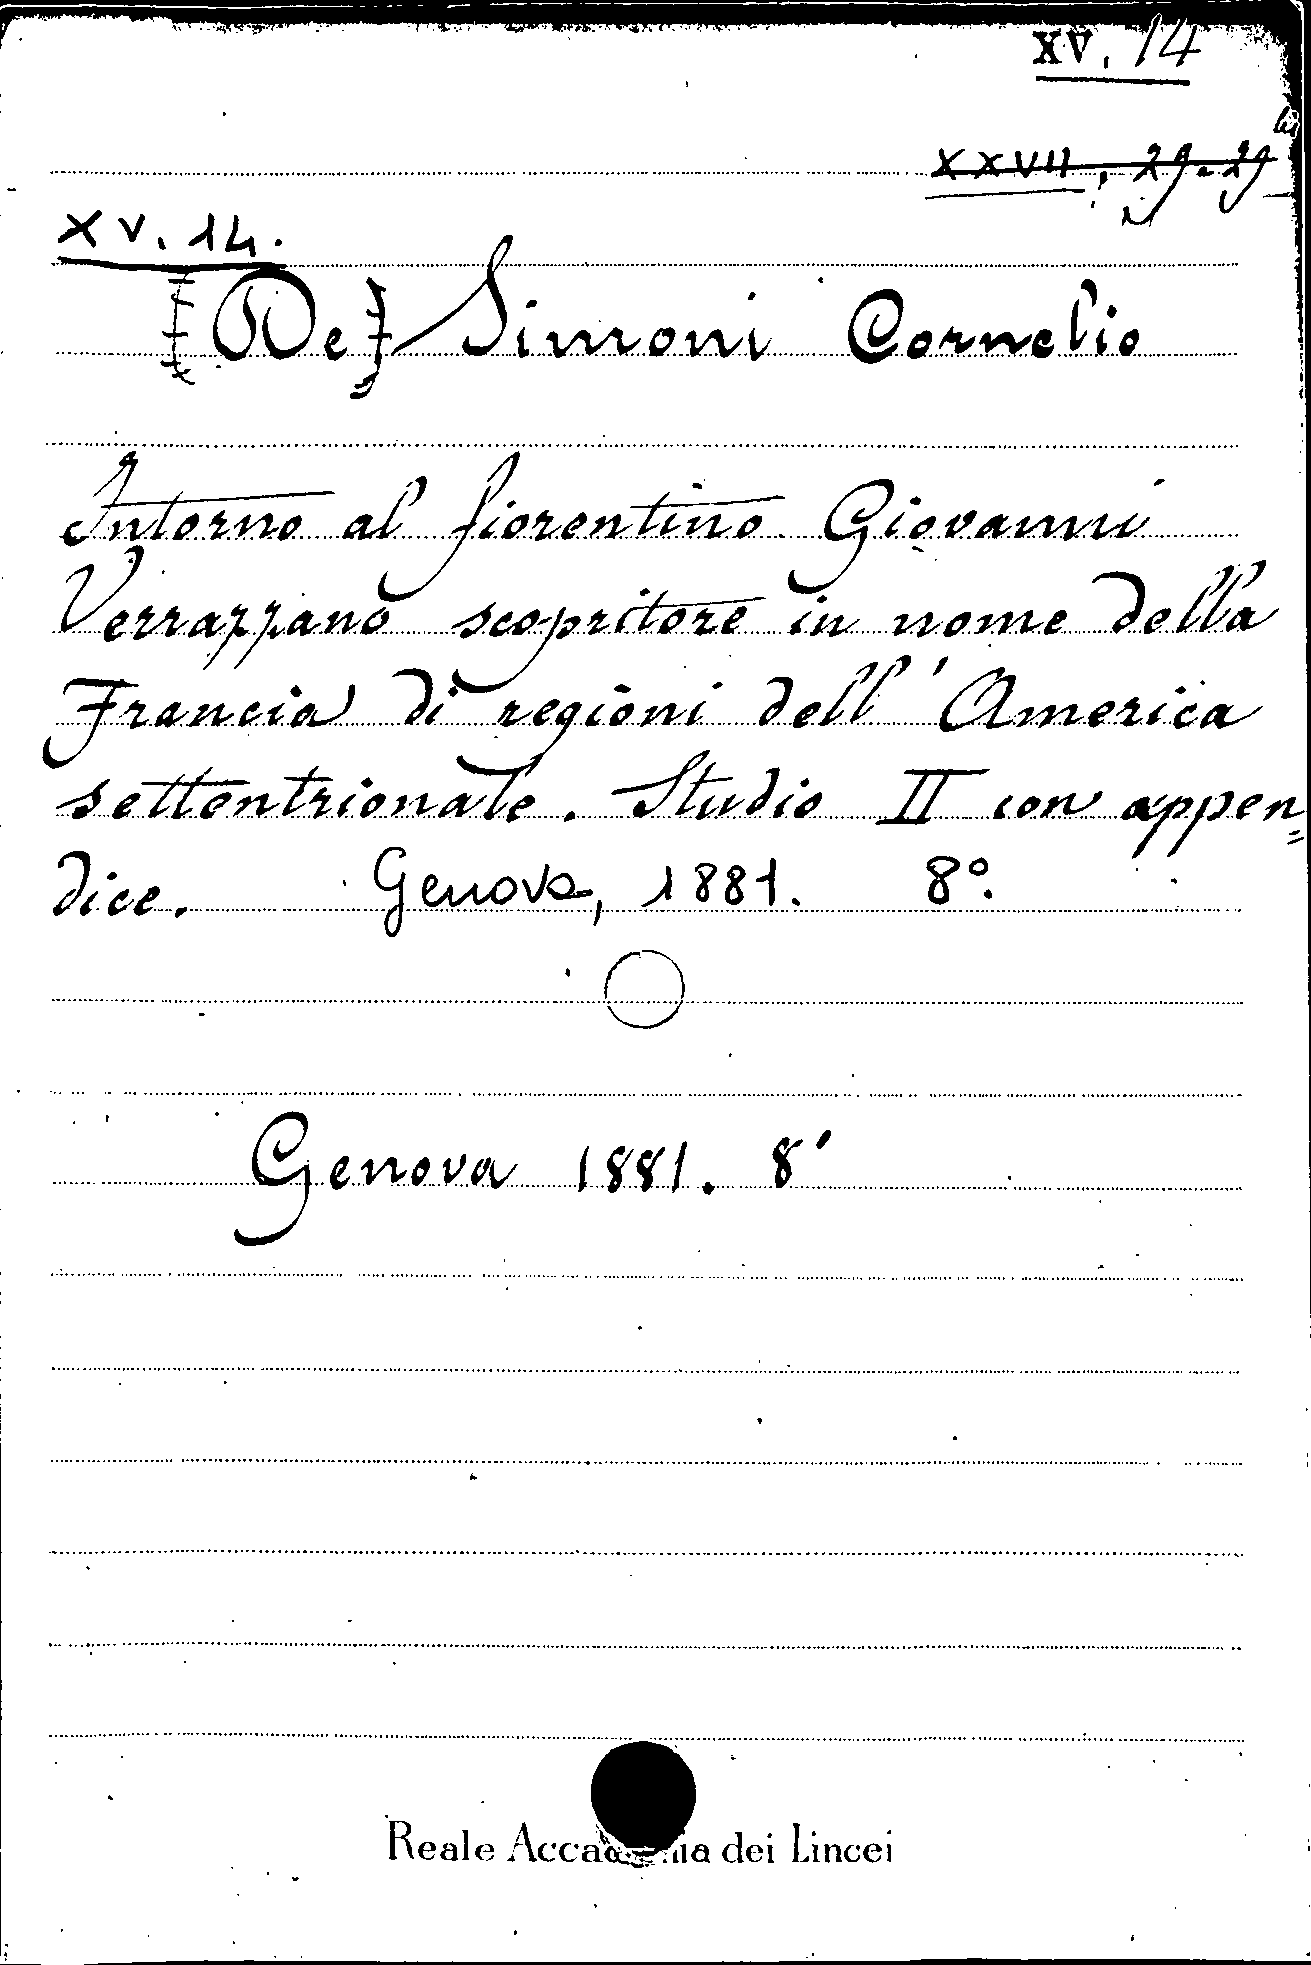 XV. 14
XXVII. 29-29 bis
XV. 14.
[De] Simoni Cornelio
Intorno al fiorentino Giovanni
Verrazzano scopritore in nome della
Francia di regioni dell'America
settentrionale. Studio II con appen=
dice. Genova, 1881. 8º.
Genova 1881. 8º
Reale Accademia dei Lincei